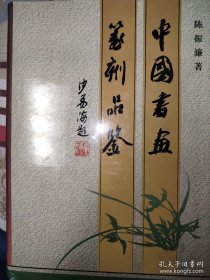 陈振濂著
中國書画
篆刻品鉴
沙孟海题
孔夫子旧书网